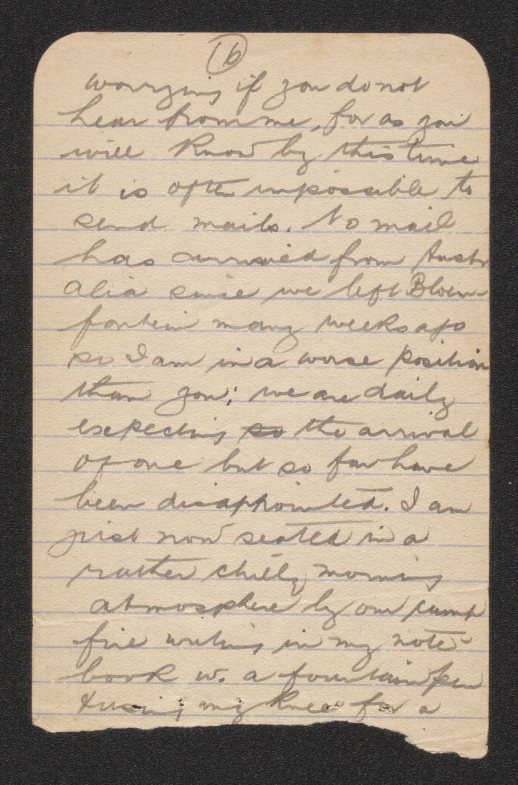 16
worrying if you do not
hear from me, for as you
will know by this time
it is often impossible to
send mails. No mail
has arrived from Austr
alia since we left Bloem-
fontein many weeks ago
so I am in a worse position
than you; we are daily
expecting so the arrival
of one but so far have
been disappointed. I am
just now seated in a
rather chilly morning
atmosphere by our camp
fire writing in my note-
book w. a fountain pen
& using my knee for a